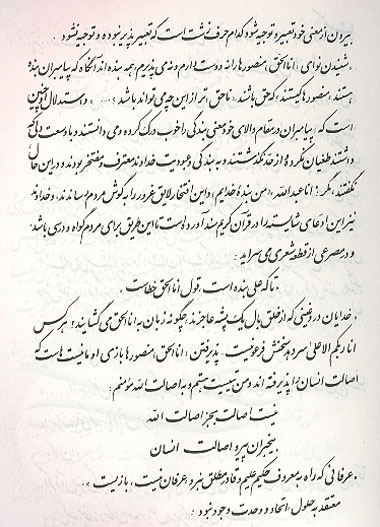 بیرون از معنی خود تعبیر و توجیه شود کدام حرف زشت است که تعبیرپذیر نبوده و توجیه نشود.
شنیدن نوای «اناالحق» منصورها را نه دوست دارم و نه می پذیرم، همه بنده اند آنگاه که پیامبران بنده
هستند، منصورها کیستند، که حق باشند، ناحق تر از این چه می تواند باشد؟... و استدلال او چنین
است که: پیامبران در مقام والای خود معنی بندگی را خوب درک کرده و می دانستند و با وسعت دانی که
داشتند طغیان نکرده و از حد نگذشتند و به بندگی و عبودیت خداوند معترف و مفتخر بودند و در این حال
نگفتند، مگر: انا عبدالله، «من بندهٔ خدایم» و این افتخار لایق غرور را به گوش مردم رساندند، و خداوند
نیز این ادعای شایسته را در قرآن کریم سند آورده است تا این طریق برای مردم گواه و درسی باشد.
و در مصرعی از قطعه شعری می سراید:
تا که علی بنده است، قول اناالحق خطاست.
خدایان دروغینی که از خلق بال یک پشه عاجزند، چگونه زبان به اناالحق می گشایند؟ هر کس
انا ربکم الاعلی سر دهد سخنش فرعونیست. پذیرفتن «اناالحق» منصورها بازی اومانیست هاست که
اصالت انسان را پذیرفته اند و من تبعیت هستم و به اصالت الله مؤمنم:
نیست اصالت بجز اصالت الله
بیخبران پیرو اصالت انسان
عرفانی که راه به معروف حکیم علیم و قادر مطلق نبرد، عرفان نیست، بازیست.
معتقد به حلول، اتحاد و وحدت وجود نبود: